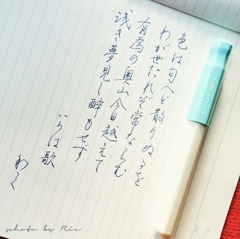 色は匂へど散りぬるを
わがせたれぞ常ならむ
有為の奥山今日越えて
浅き夢見し酔もせず
いろは歌
photo by Rie